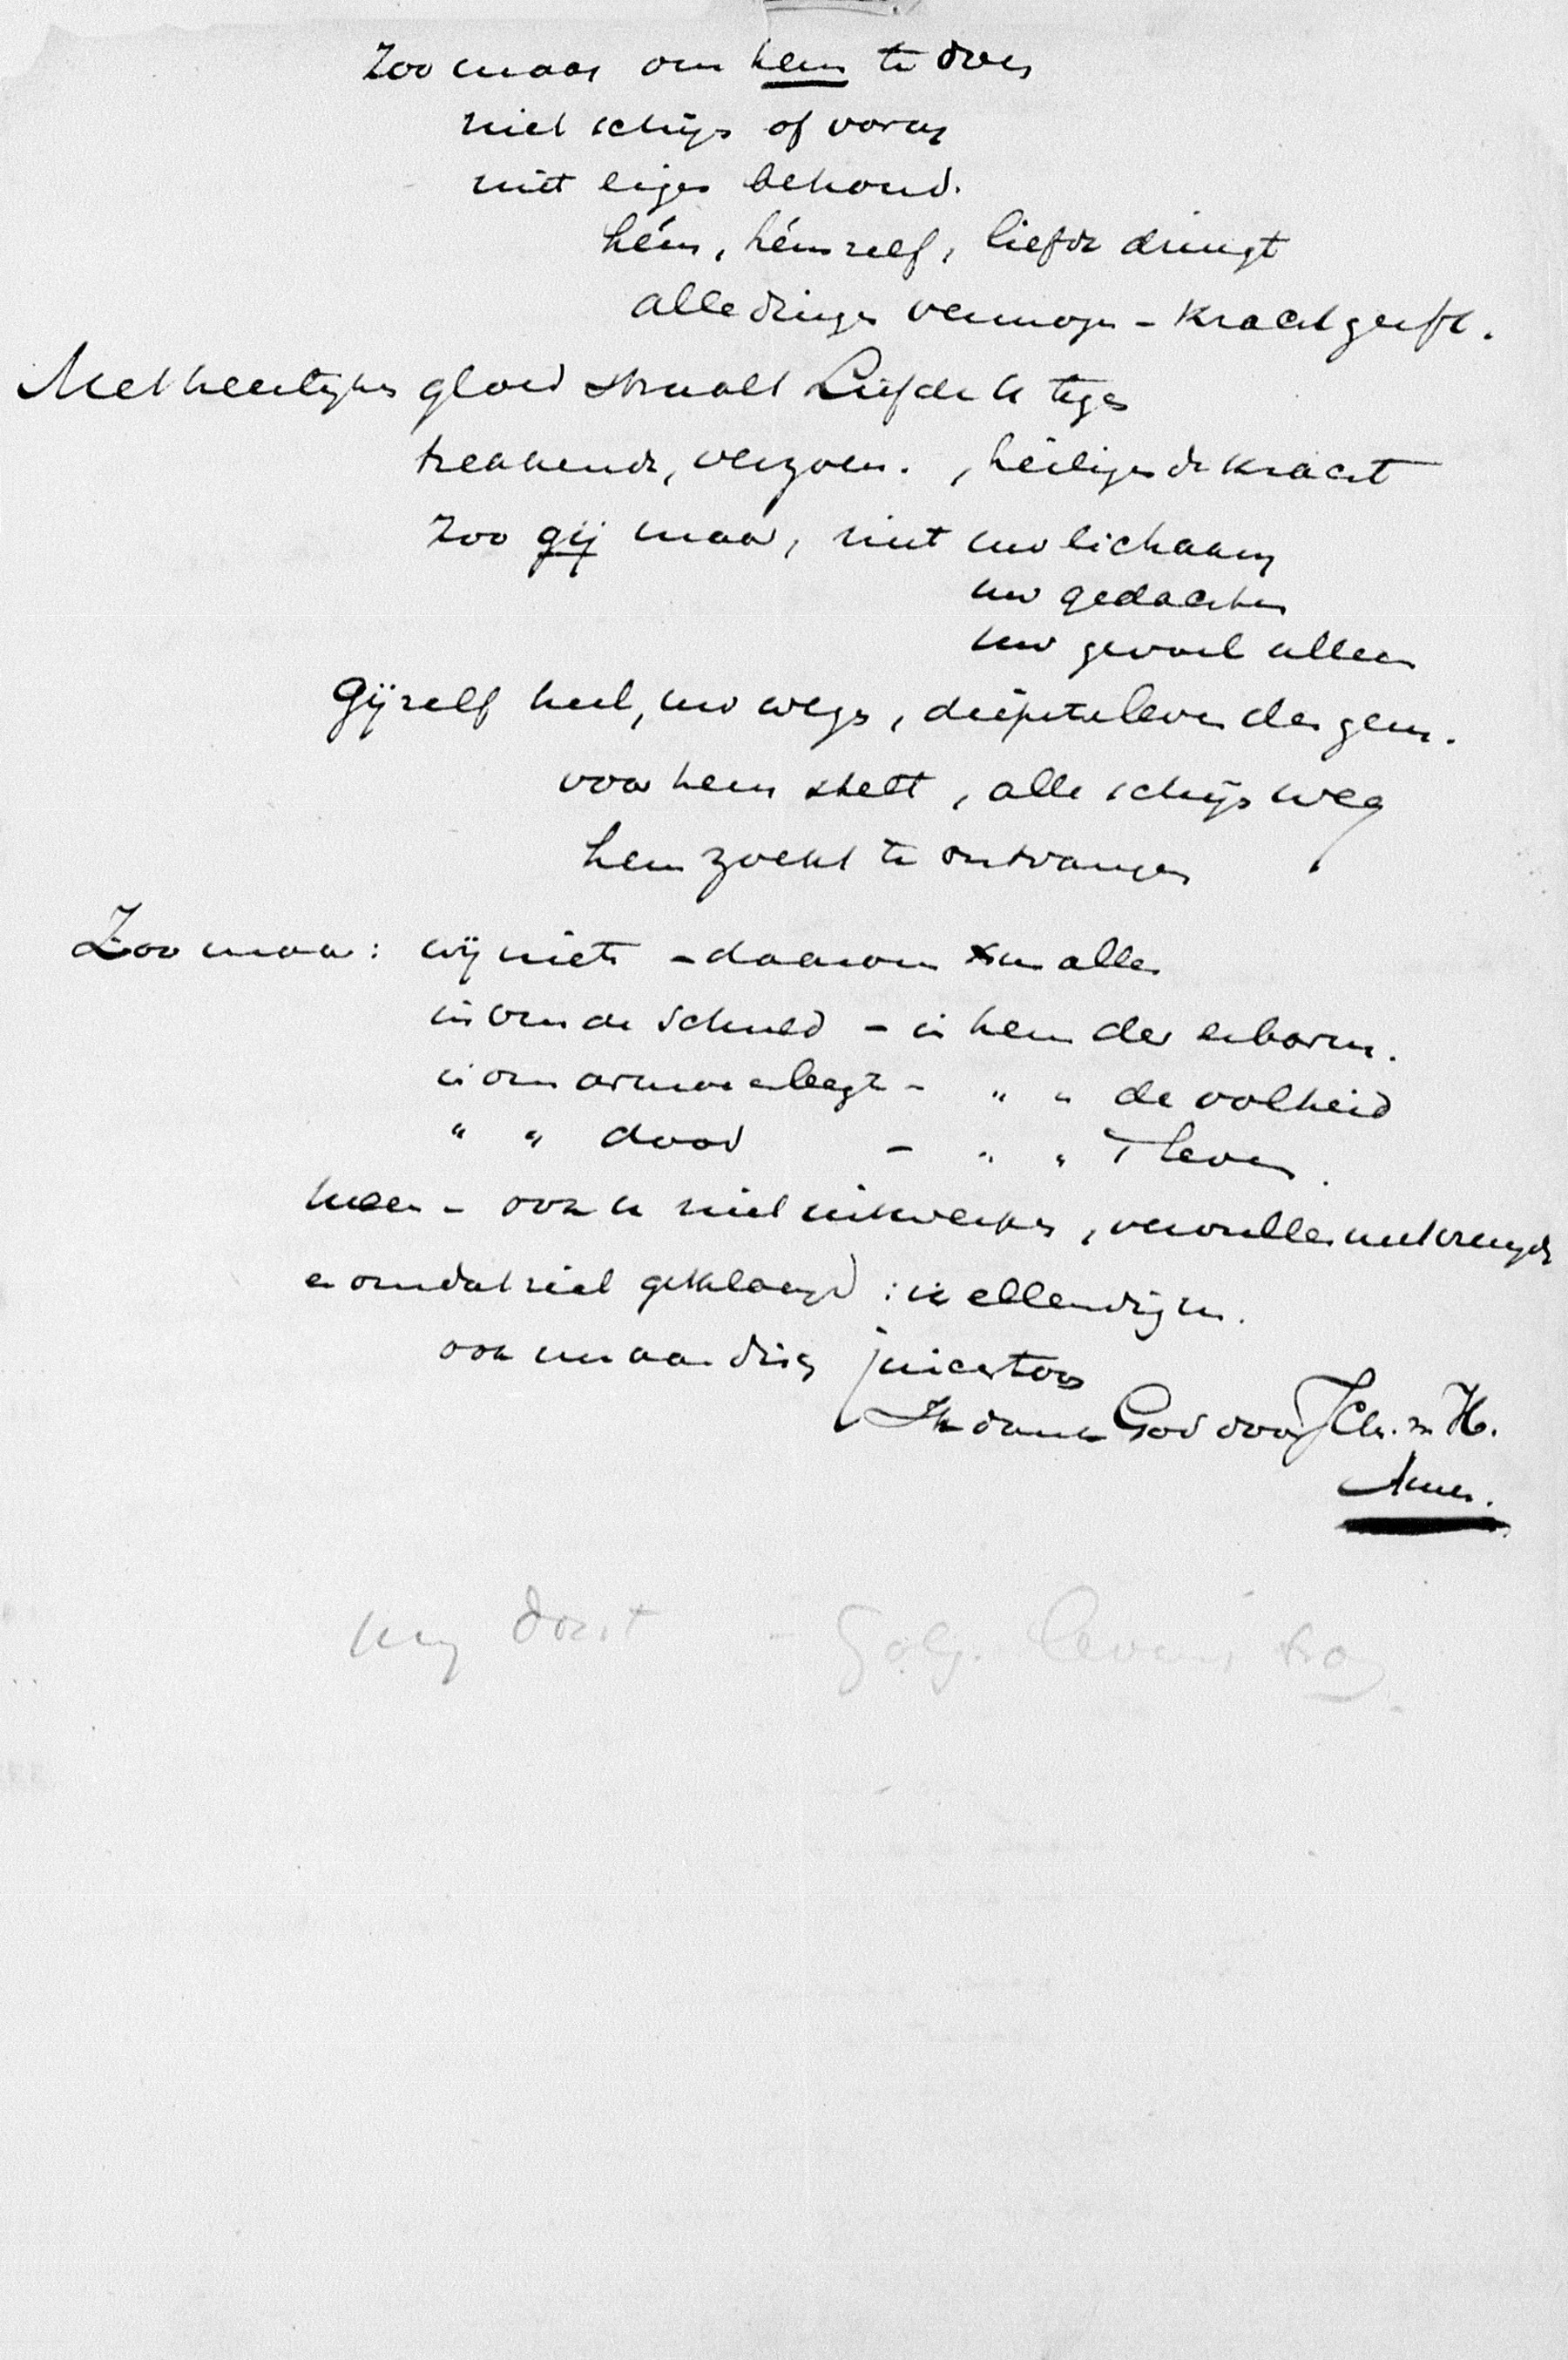 Zoo maar om hem te doen
niet schijn of vorm
niet eigen behoud.
hém, hémzelf, liefde dringt
alle dingen vermogen - kracht geeft.
Met heerlijken gloed straalt Liefde u tegen
trekkende, verzoen. , heiligende kracht
Zoo gij maar, niet uw lichaam
uw gedachten
uw gevoel alleen
Gijzelf heel, uw wegen, diepste leven des gem.
voor hem stelt, alle schijn weg
hem zoekt te ontvangen
Zoo maar: wij niets - daarom alles
in ons de schuld - in hem der erbarm.
in ons armoe en leegte - " " de volheid
" " dood - " " 't leven.
meer - ook u niet uitwerpen, vervullen met vreugde
en omdat niet geklaagd : ik ellendig m.
ook maar dien juichtoon
Ik dank God door J Chr. n H.
Amen.
mij dorst - Golg.